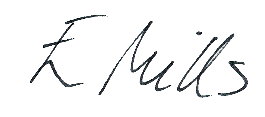 E Mills